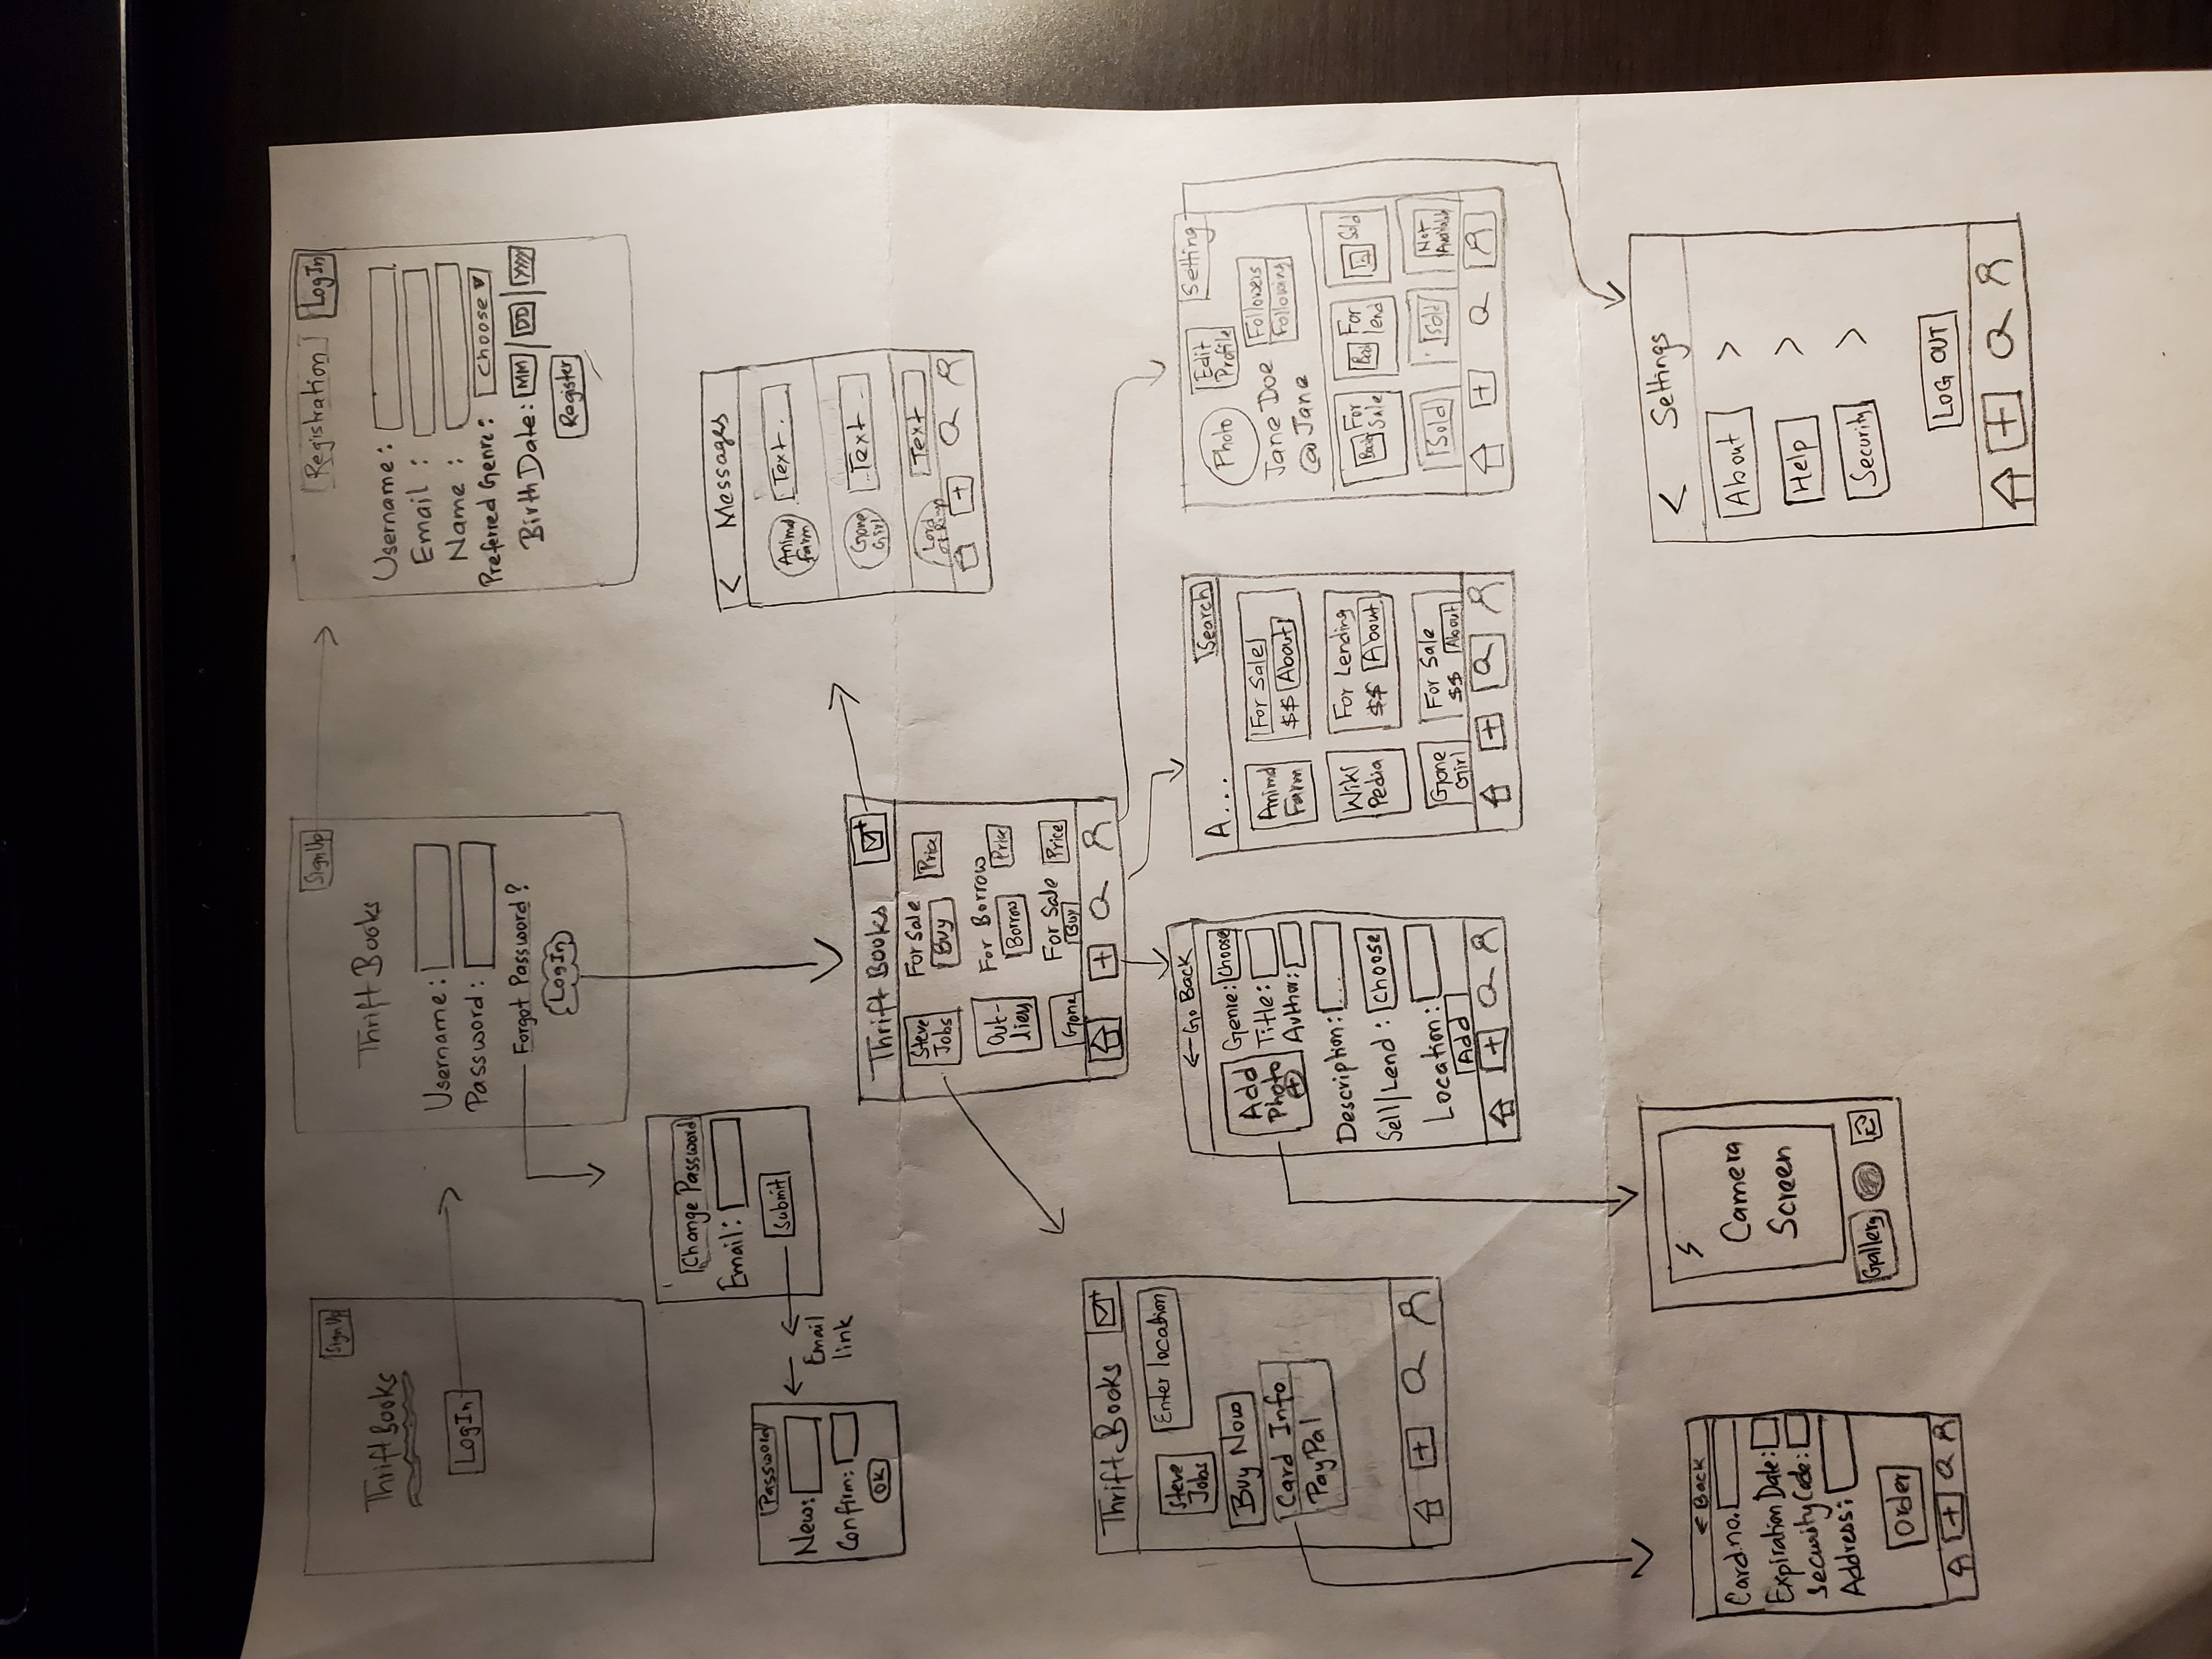 Sign Up
Thrift Books
Log In
Sign Up
Thrift Books
Username:
Password:
Forgot Password?
Log In
Registration
Log In
Username:
Email :
Name :
Preferred Genre: Choose
Birth Date: MM / DD / YYYY
Register
Change Password
Email:
Submit
Email
link
Password
New:
Confirm:
OK
Messages
Animal
Farm
Text.
Gone
Girl
..Text..
Lord
of Rings
Text
Thrift Books
Steve
Jobs
For Sale
Buy
Price
Out-
liers
For Borrow
Borrow
Price
Gone
For Sale
Buy
Price
Thrift Books
Steve
Jobs
Enter location
Buy Now
Card Info
PayPal
← Go Back
Add
Photo
+
Genre: Choose
Title:
Author:
Description: ...
Sell/Lend : Choose
Location:
Add
A...
Search
Animal
Farm
For Sale
$$ About
Wiki
Pedia
For Lending
$$ About
Gone
Girl
For Sale
$$ About
Photo
Edit
Profile
Setting
Jane Doe
@Jane
Followers
Following
Book
For
Sale
Book
For
lend
Sold
Sold
Sold
Not
Available
← Back
Card.no.
Expiration Date:
Security Code:
Address:
Order
Camera
Screen
Gallery
< Settings
About >
Help >
Security >
LOG OUT